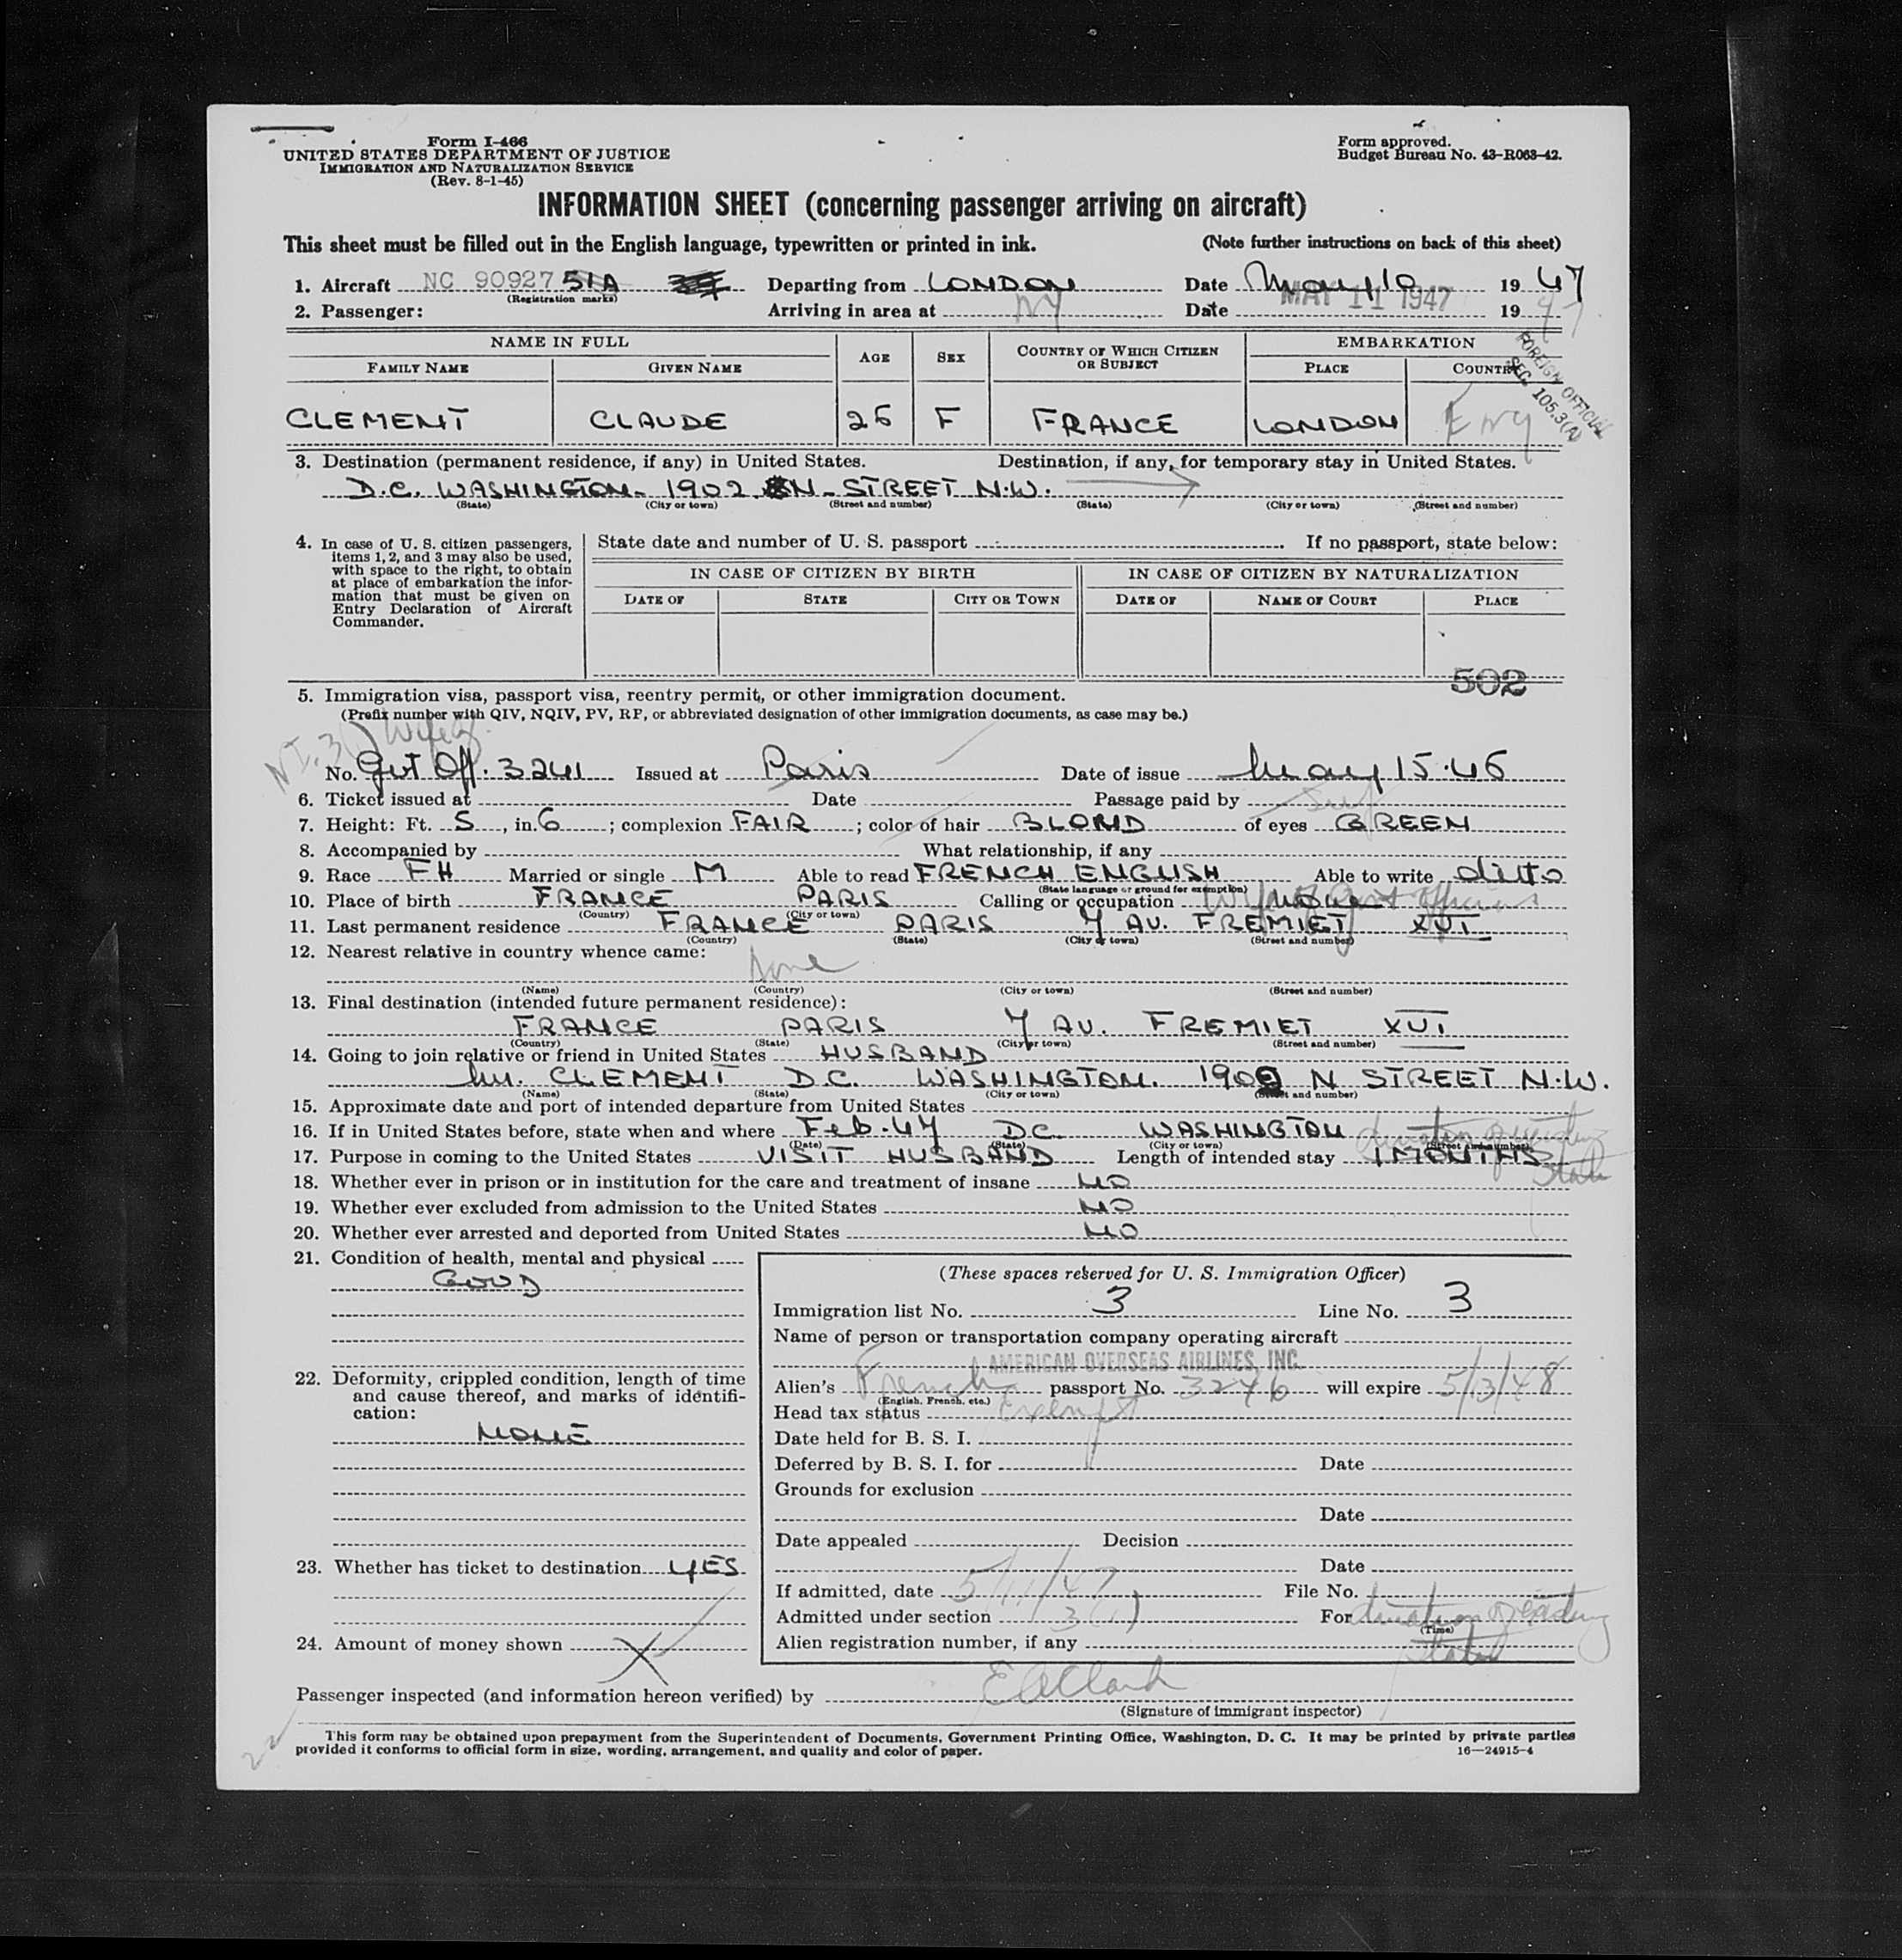 Form I-466
UNITED STATES DEPARTMENT OF JUSTICE
IMMIGRATION AND NATURALIZATION SERVICE
(Rev. 8-1-45)
Form approved.
Budget Bureau No. 43-R063-42.
INFORMATION SHEET (concerning passenger arriving on aircraft)
This sheet must be filled out in the English language, typewritten or printed in ink. (Note further instructions on back of this sheet)
1. Aircraft NC 90927 51A Departing from LONDON Date May 10 1947
(Registration marks)
2. Passenger: Arriving in area at NY Date MAY 11 1947 1947
NAME IN FULL AGE SEX COUNTRY OF WHICH CITIZEN OR SUBJECT EMBARKATION
FAMILY NAME GIVEN NAME PLACE COUNTRY
FOREIGN OFFICIAL
SEC. 105.3(A)
CLEMENT CLAUDE 26 F FRANCE LONDON Eng
3. Destination (permanent residence, if any) in United States. Destination, if any, for temporary stay in United States.
D.C. WASHINGTON - 1902 N - STREET N.W.
(State) (City or town) (Street and number) (State) (City or town) (Street and number)
4. In case of U. S. citizen passengers, items 1, 2, and 3 may also be used, with space to the right, to obtain at place of embarkation the information that must be given on Entry Declaration of Aircraft Commander.
State date and number of U. S. passport If no passport, state below:
IN CASE OF CITIZEN BY BIRTH IN CASE OF CITIZEN BY NATURALIZATION
DATE OF STATE CITY OR TOWN DATE OF NAME OF COURT PLACE
502
5. Immigration visa, passport visa, reentry permit, or other immigration document.
(Prefix number with QIV, NQIV, PV, RP, or abbreviated designation of other immigration documents, as case may be.)
No. Gvt Off. 3241 Issued at Paris Date of issue May 15.46
6. Ticket issued at Date Passage paid by Self
7. Height: Ft. 5, in. 6; complexion FAIR; color of hair BLOND of eyes GREEN
8. Accompanied by What relationship, if any
9. Race FH Married or single M Able to read FRENCH ENGLISH Able to write ditto
(State language or ground for exemption)
10. Place of birth FRANCE PARIS Calling or occupation
(Country) (City or town)
11. Last permanent residence FRANCE PARIS 7 AV. FREMIET XVI
(Country) (State) (City or town) (Street and number)
12. Nearest relative in country whence came: None
(Name) (Country) (City or town) (Street and number)
13. Final destination (intended future permanent residence):
FRANCE PARIS 7 AV. FREMIET XVI
(Country) (State) (City or town) (Street and number)
14. Going to join relative or friend in United States HUSBAND
Mr. CLEMENT D.C. WASHINGTON. 1902 N STREET N.W.
(Name) (State) (City or town) (Street and number)
15. Approximate date and port of intended departure from United States
16. If in United States before, state when and where Feb. 47 DC. WASHINGTON
(Date) (State) (City or town) (Street and number)
17. Purpose in coming to the United States VISIT HUSBAND Length of intended stay 1 MONTHS
18. Whether ever in prison or in institution for the care and treatment of insane NO
19. Whether ever excluded from admission to the United States NO
20. Whether ever arrested and deported from United States NO
21. Condition of health, mental and physical
GOOD
22. Deformity, crippled condition, length of time and cause thereof, and marks of identification:
NONE
23. Whether has ticket to destination YES
24. Amount of money shown X
(These spaces reserved for U. S. Immigration Officer)
Immigration list No. 3 Line No. 3
Name of person or transportation company operating aircraft
AMERICAN OVERSEAS AIRLINES, INC.
Alien's French passport No. 3246 will expire 5/3/48
(English, French, etc.)
Head tax status Exempt
Date held for B. S. I.
Deferred by B. S. I. for Date
Grounds for exclusion
Date
Date appealed Decision
Date
If admitted, date 5/11/47 File No.
Admitted under section 3(1) For
(Time)
Alien registration number, if any
Passenger inspected (and information hereon verified) by E A Clark
(Signature of immigrant inspector)
This form may be obtained upon prepayment from the Superintendent of Documents, Government Printing Office, Washington, D. C. It may be printed by private parties
provided it conforms to official form in size, wording, arrangement, and quality and color of paper. 16—24915-4